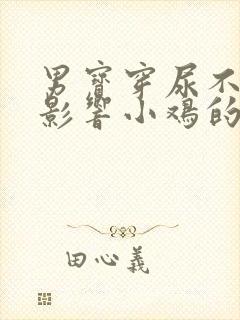 男寶穿尿不
影響小鳮的
田心義